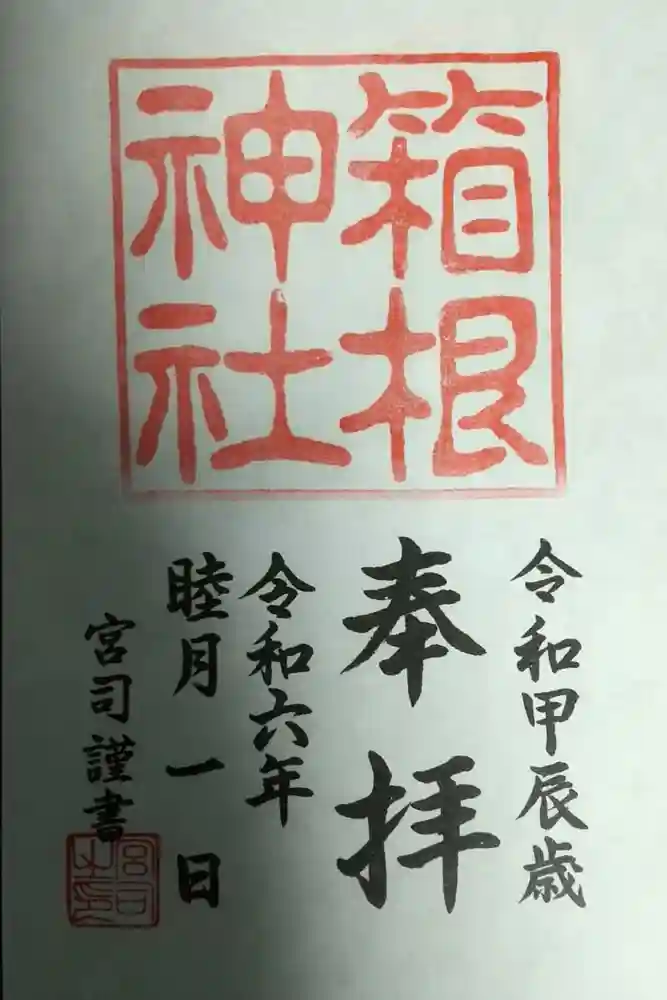 箱根
神社
令和甲辰歳
奉拝
令和六年
睦月一日
宮司謹書
宮司
之印